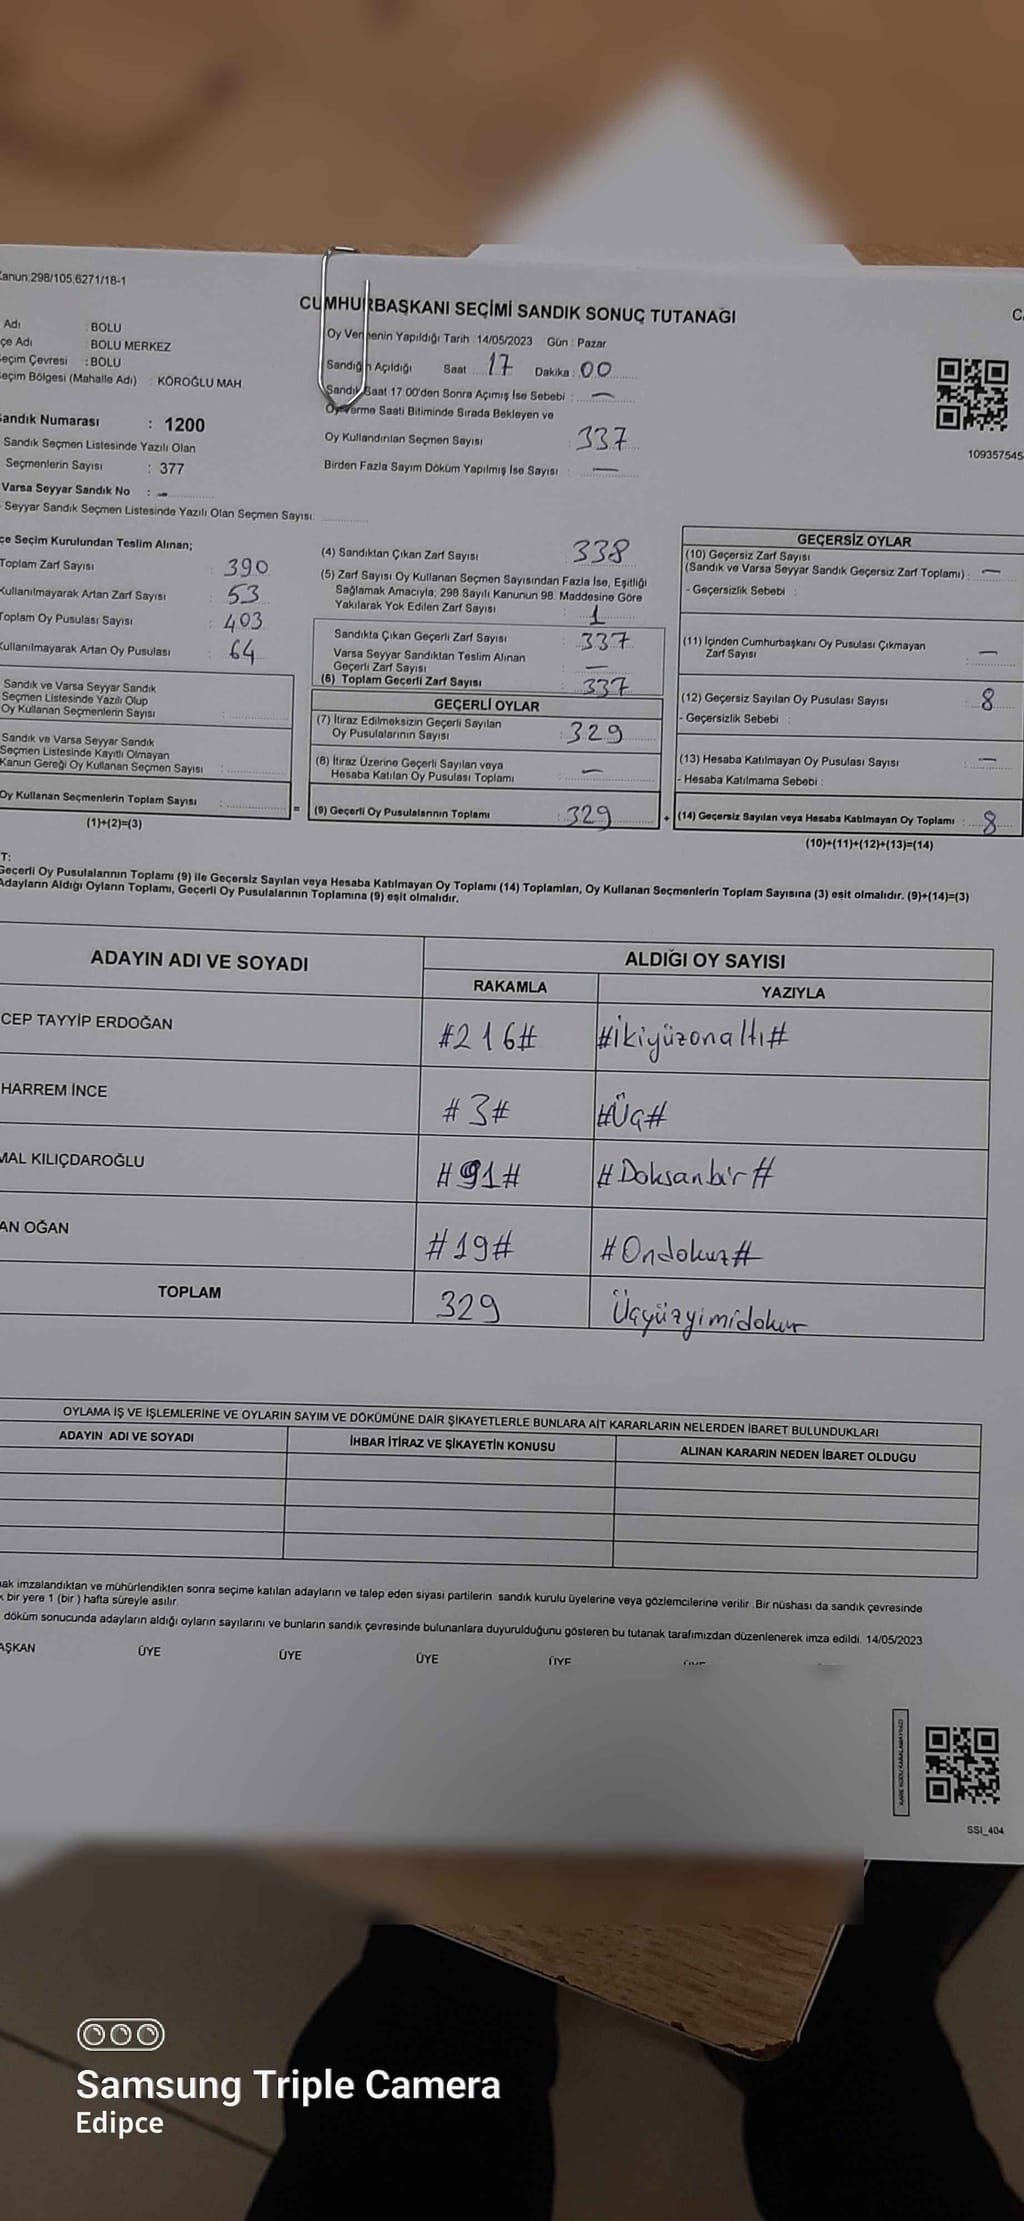 Kanun:298/105,6271/18-1
CUMHURBAŞKANI SEÇİMİ SANDIK SONUÇ TUTANAĞI
Adı : BOLU
çe Adı : BOLU MERKEZ
eçim Çevresi : BOLU
eçim Bölgesi (Mahalle Adı) : KÖROĞLU MAH.
Oy Vermenin Yapıldığı Tarih : 14/05/2023 Gün : Pazar
Sandığın Açıldığı Saat 17 Dakika : 00
Sandık Saat 17:00'den Sonra Açımış İse Sebebi : —
Oy Verme Saati Bitiminde Sırada Bekleyen ve
Oy Kullandırılan Seçmen Sayısı : 337
Birden Fazla Sayım Döküm Yapılmış İse Sayısı : —
109357545
andık Numarası : 1200
Sandık Seçmen Listesinde Yazılı Olan
Seçmenlerin Sayısı : 377
Varsa Seyyar Sandık No : -
Seyyar Sandık Seçmen Listesinde Yazılı Olan Seçmen Sayısı:
çe Seçim Kurulundan Teslim Alınan;
Toplam Zarf Sayısı : 390
Kullanılmayarak Artan Zarf Sayısı : 53
Toplam Oy Pusulası Sayısı : 403
Kullanılmayarak Artan Oy Pusulası : 64
Sandık ve Varsa Seyyar Sandık
Seçmen Listesinde Yazılı Olup
Oy Kullanan Seçmenlerin Sayısı :
Sandık ve Varsa Seyyar Sandık
Seçmen Listesinde Kayıtlı Olmayan
Kanun Gereği Oy Kullanan Seçmen Sayısı :
Oy Kullanan Seçmenlerin Toplam Sayısı :
(1)+(2)=(3)
=
(4) Sandıktan Çıkan Zarf Sayısı : 338
(5) Zarf Sayısı Oy Kullanan Seçmen Sayısından Fazla İse, Eşitliği
Sağlamak Amacıyla; 298 Sayılı Kanunun 98. Maddesine Göre
Yakılarak Yok Edilen Zarf Sayısı : 1
Sandıkta Çıkan Geçerli Zarf Sayısı : 337
Varsa Seyyar Sandıktan Teslim Alınan
Geçerli Zarf Sayısı : —
(6) Toplam Geçerli Zarf Sayısı : 337
GEÇERLİ OYLAR
(7) İtiraz Edilmeksizin Geçerli Sayılan
Oy Pusulalarının Sayısı : 329
(8) İtiraz Üzerine Geçerli Sayılan veya
Hesaba Katılan Oy Pusulası Toplamı : —
(9) Geçerli Oy Pusulalarının Toplamı : 329
+
GEÇERSİZ OYLAR
(10) Geçersiz Zarf Sayısı
(Sandık ve Varsa Seyyar Sandık Geçersiz Zarf Toplamı) : —
- Geçersizlik Sebebi :
(11) İçinden Cumhurbaşkanı Oy Pusulası Çıkmayan
Zarf Sayısı : —
(12) Geçersiz Sayılan Oy Pusulası Sayısı : 8
- Geçersizlik Sebebi :
(13) Hesaba Katılmayan Oy Pusulası Sayısı : —
- Hesaba Katılmama Sebebi :
(14) Geçersiz Sayılan veya Hesaba Katılmayan Oy Toplamı : 8
(10)+(11)+(12)+(13)=(14)
T:
Geçerli Oy Pusulalarının Toplamı (9) ile Geçersiz Sayılan veya Hesaba Katılmayan Oy Toplamı (14) Toplamları, Oy Kullanan Seçmenlerin Toplam Sayısına (3) eşit olmalıdır. (9)+(14)=(3)
Adayların Aldığı Oyların Toplamı, Geçerli Oy Pusulalarının Toplamına (9) eşit olmalıdır.
ADAYIN ADI VE SOYADI ALDIĞI OY SAYISI
RAKAMLA YAZIYLA
CEP TAYYİP ERDOĞAN #216# #İkiyüzonaltı#
HARREM İNCE #3# #Üç#
MAL KILIÇDAROĞLU #91# #Doksanbir#
AN OĞAN #19# #Ondokuz#
TOPLAM 329 Üçyüzyimidokuz
OYLAMA İŞ VE İŞLEMLERİNE VE OYLARIN SAYIM VE DÖKÜMÜNE DAİR ŞİKAYETLERLE BUNLARA AİT KARARLARIN NELERDEN İBARET BULUNDUKLARI
ADAYIN ADI VE SOYADI İHBAR İTİRAZ VE ŞİKAYETİN KONUSU ALINAN KARARIN NEDEN İBARET OLDUĞU
nak imzalandıktan ve mühürlendikten sonra seçime katılan adayların ve talep eden siyasi partilerin sandık kurulu üyelerine veya gözlemcilerine verilir .Bir nüshası da sandık çevresinde
k bir yere 1 (bir ) hafta süreyle asılır.
döküm sonucunda adayların aldığı oyların sayılarını ve bunların sandık çevresinde bulunanlara duyurulduğunu gösteren bu tutanak tarafımızdan düzenlenerek imza edildi. 14/05/2023
AŞKAN ÜYE ÜYE ÜYE ÜYE
SSI_404
Samsung Triple Camera
Edipce